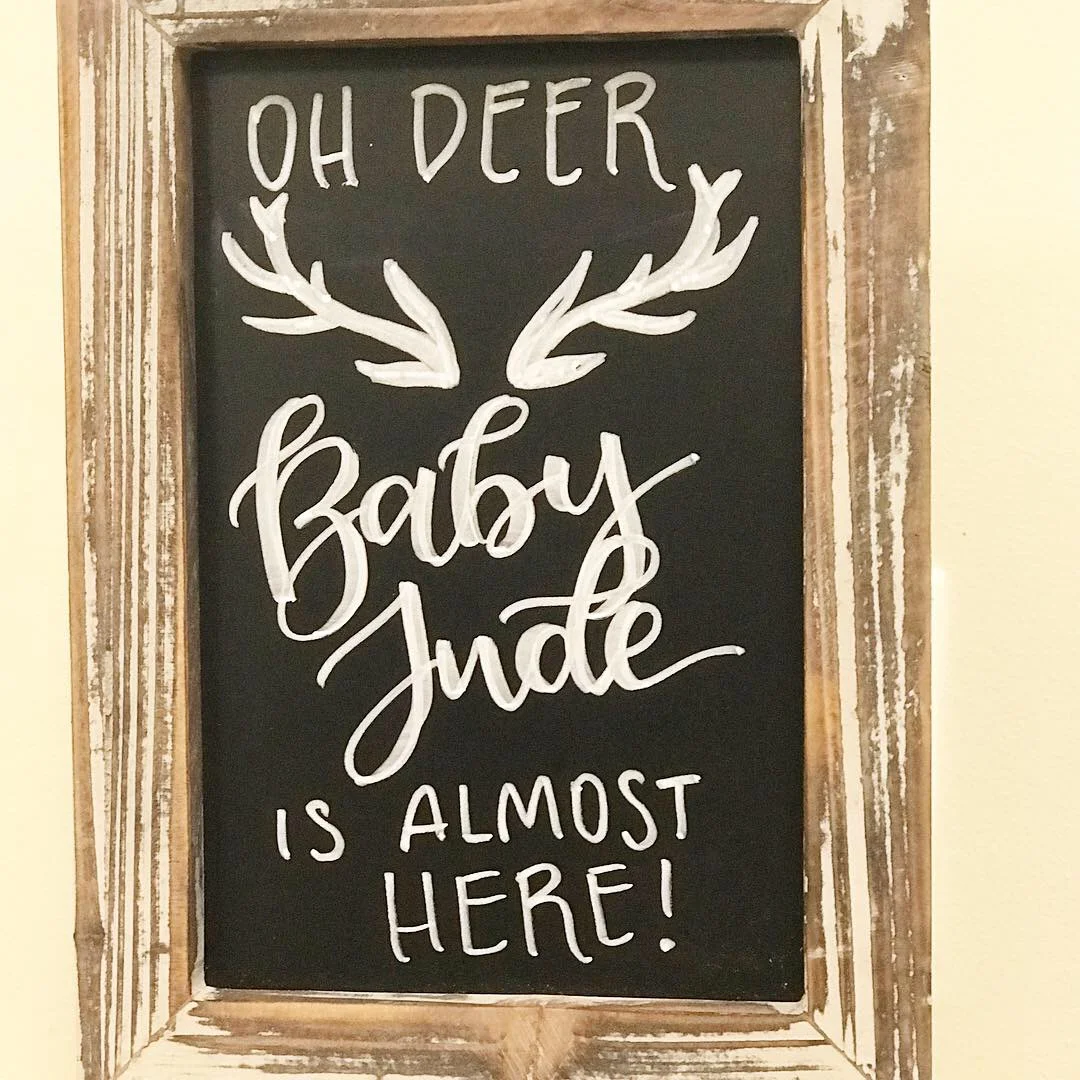 OH DEER
Baby
Jude
IS ALMOST
HERE!